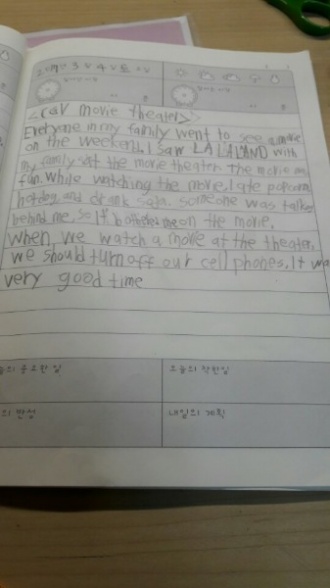 2017년 3월 4일 토요일
<CGV movie theater>
Everyone in my family went to see a movie
on the weekend. I saw LA LA LAND with
my family at the movie theater. The movie was
fun. While watching the movie, I ate popcorn,
hotdog and drank soda. someone was talking
behind me, so it bothered me on the movie.
When, we watch a movie at the theater,
we should turn off our cell phones. It was
very good time
오늘의 중요한 일
오늘의 착한일
의 반성
내일의 계획